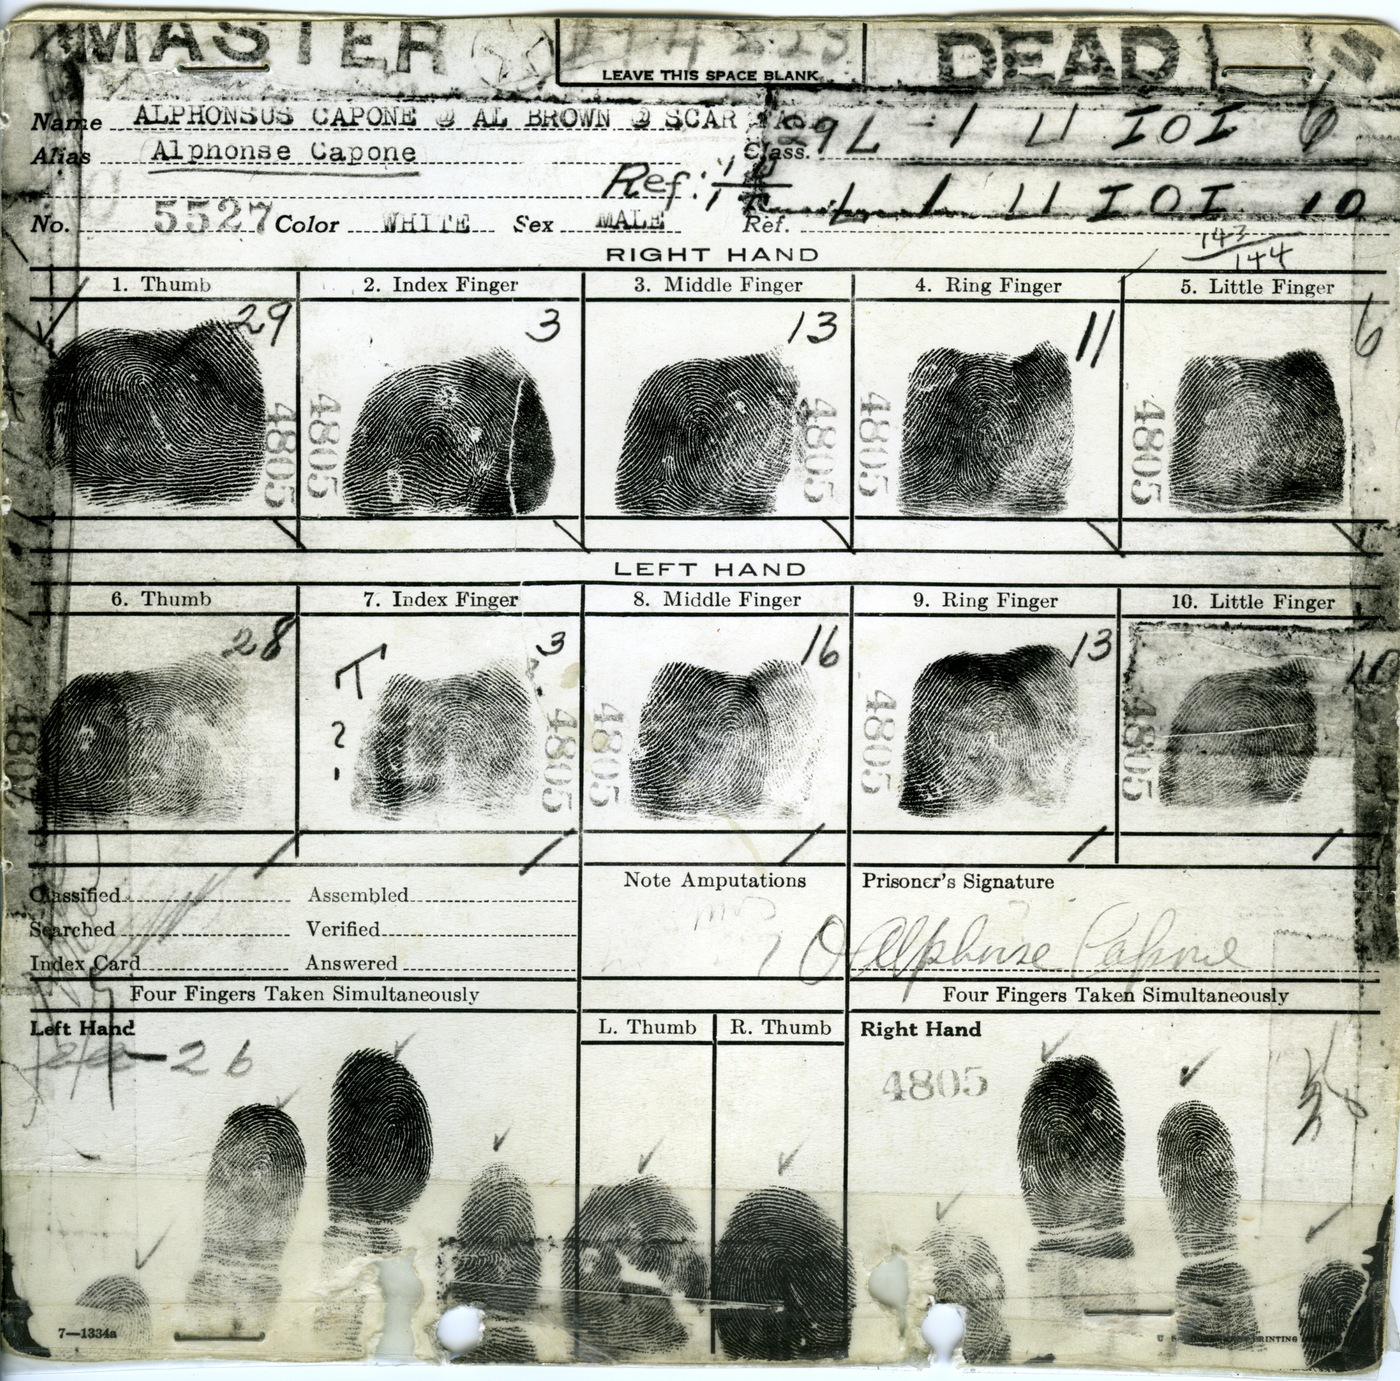 MASTER DEAD
LEAVE THIS SPACE BLANK
Name ALPHONSUS CAPONE @ AL BROWN @ SCAR
Alias Alphonse Capone Class. 9 L 1 U IOI 6
Ref: L 1 U IOI 10
No. 5527 Color WHITE Sex MALE Ref.
143
144
RIGHT HAND
1. Thumb 2. Index Finger 3. Middle Finger 4. Ring Finger 5. Little Finger
29 3 13 11 6
4805 4805 4805 4805 4805
LEFT HAND
6. Thumb 7. Index Finger 8. Middle Finger 9. Ring Finger 10. Little Finger
28 T 3 16 13 10
?
4805 4805 4805 4805 4805
Classified Assembled Note Amputations Prisoner's Signature
Searched Verified
Index Card Answered Alphonse Capone
Four Fingers Taken Simultaneously Four Fingers Taken Simultaneously
Left Hand L. Thumb R. Thumb Right Hand
26 4805
7—1334a PRINTING